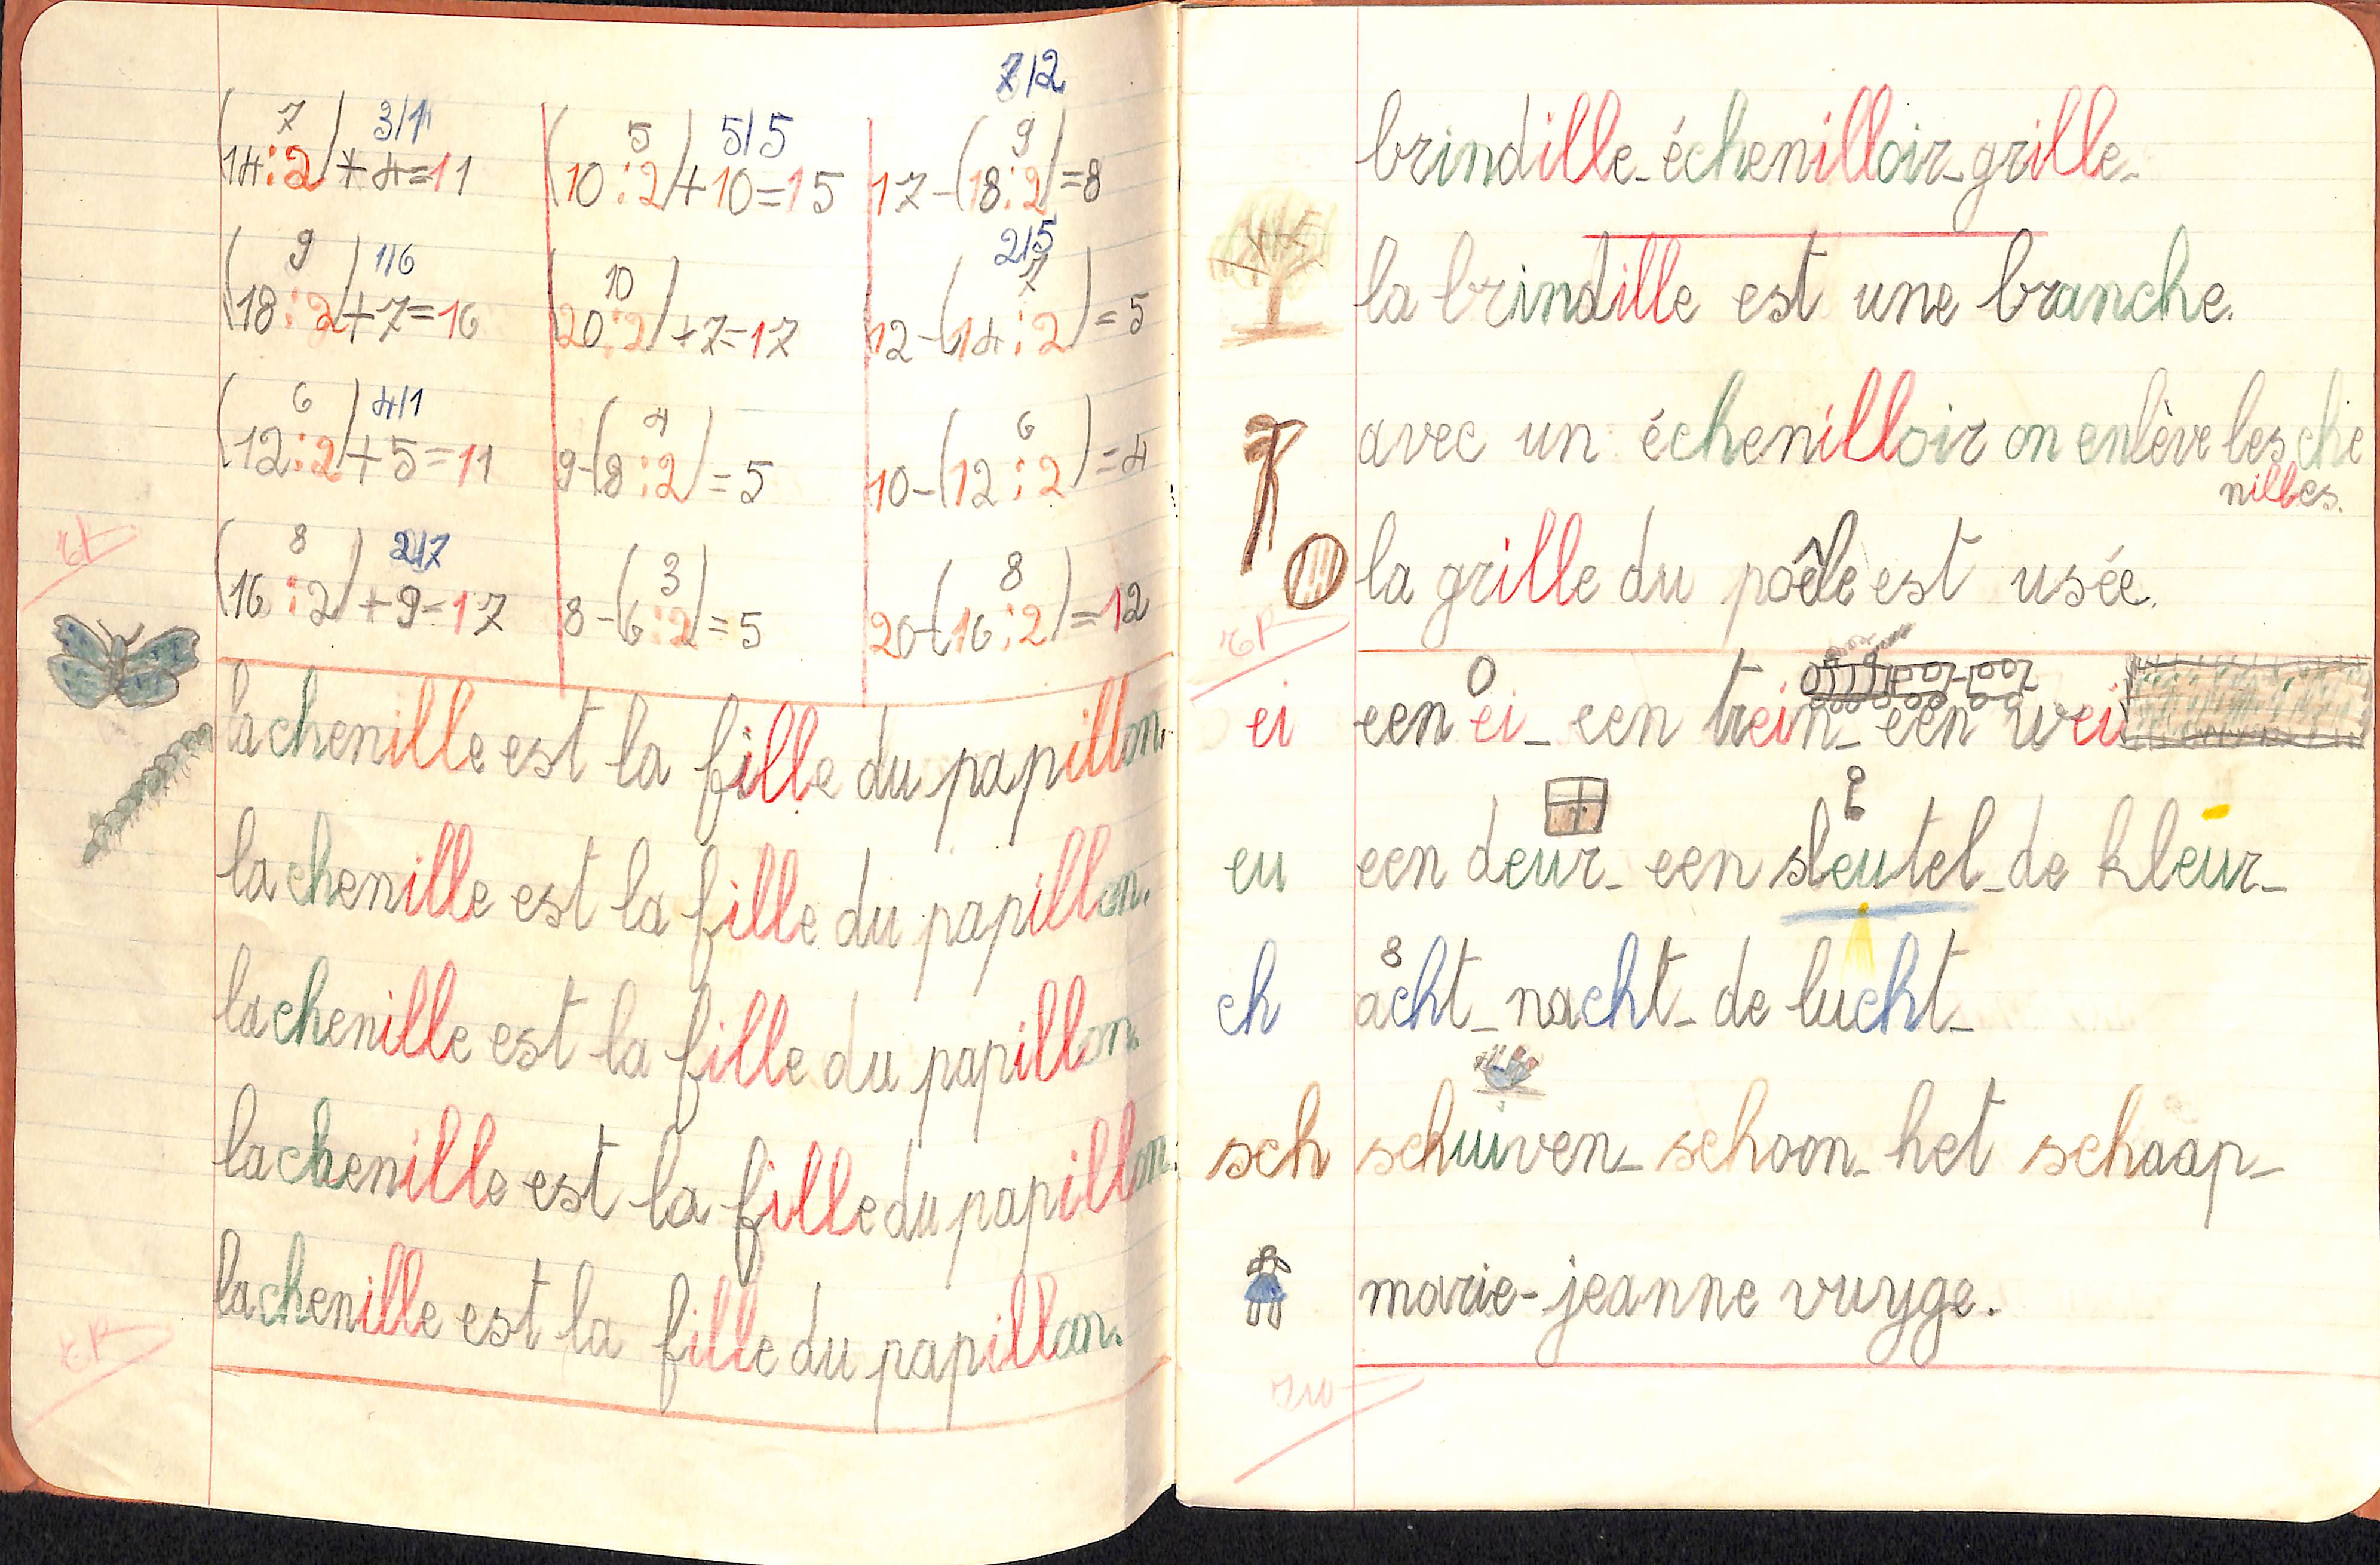 7/2
7 3/1 5 5/5 9
(14:2)+4=11 (10:2)+10=15 17-(18:2)=8
9 1/6 10 2/5 7
(18:2)+7=16 (20:2)+7=17 12-(14:2)=5
6 4/1 4 6
(12:2)+5=11 9-(8:2)=5 10-(12:2)=4
8 2/7 3 8
(16:2)+9=17 8-(6:2)=5 20-(16:2)=12
la chenille est la fille du papillon.
la chenille est la fille du papillon.
la chenille est la fille du papillon.
la chenille est la fille du papillon.
la chenille est la fille du papillon.
brindille_échenilloir_grille_
la brindille est une branche.
avec un échenilloir on enlève les che
nilles.
la grille du poêle est usée.
ei een ei_ een trein_ een wei
eu een deur_ een sleutel_de kleur_
8
ch acht_nacht_de lucht_
sch schuiven_schoon_het schaap_
marie-jeanne vuyge.